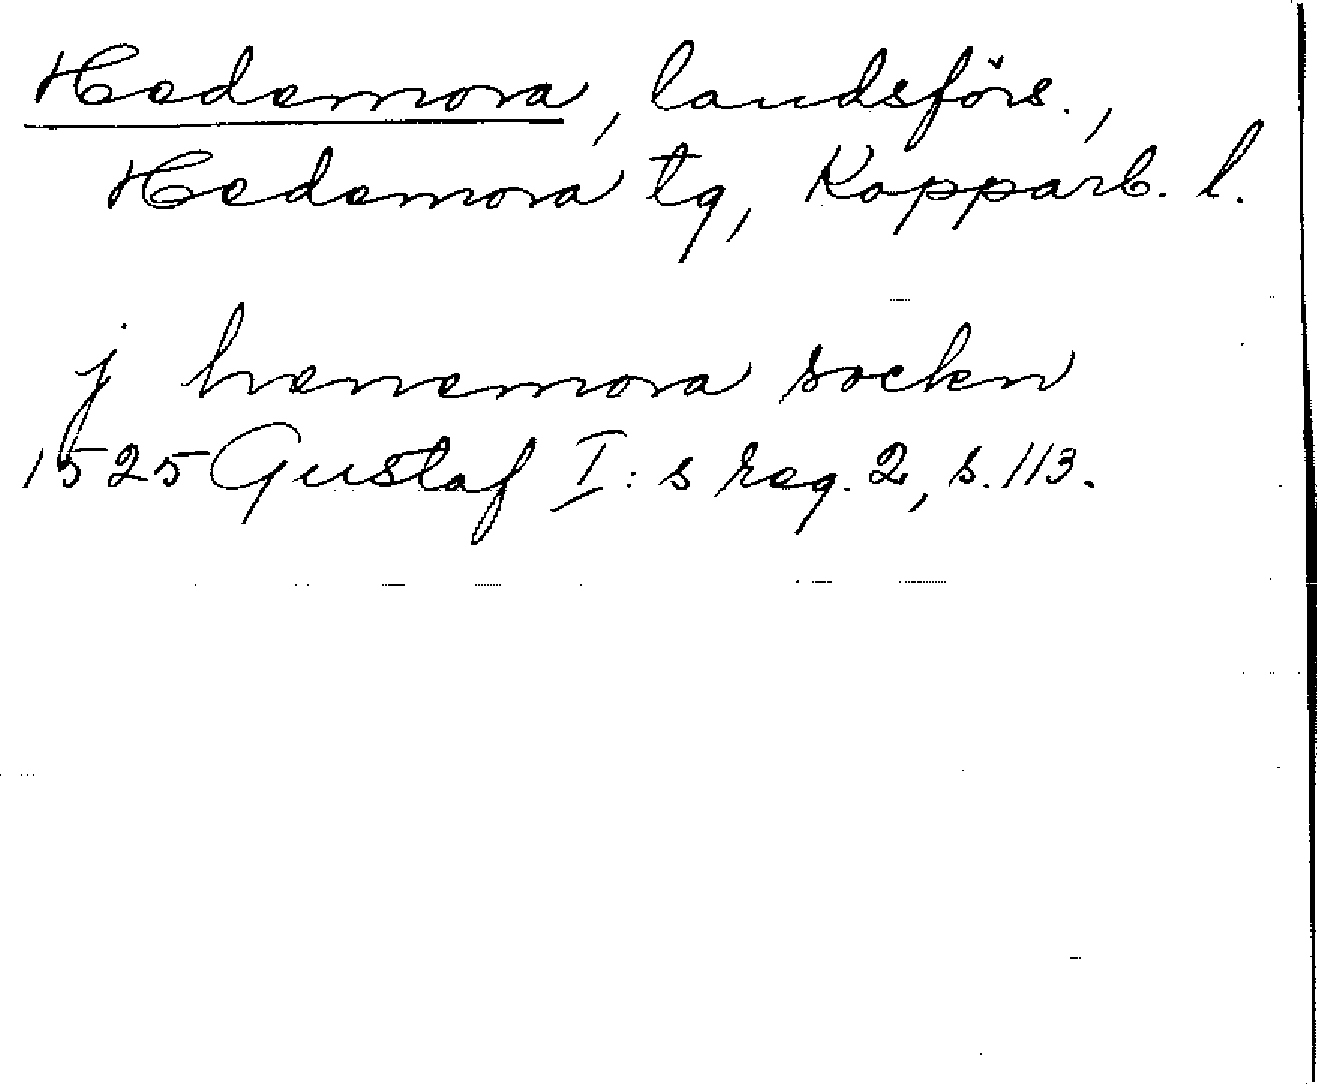 Hedemora, landsförs.,
Hedemora tg, Kopparb. l.
j henemora sockn
1525 Gustaf I:s reg. 2, s. 113.